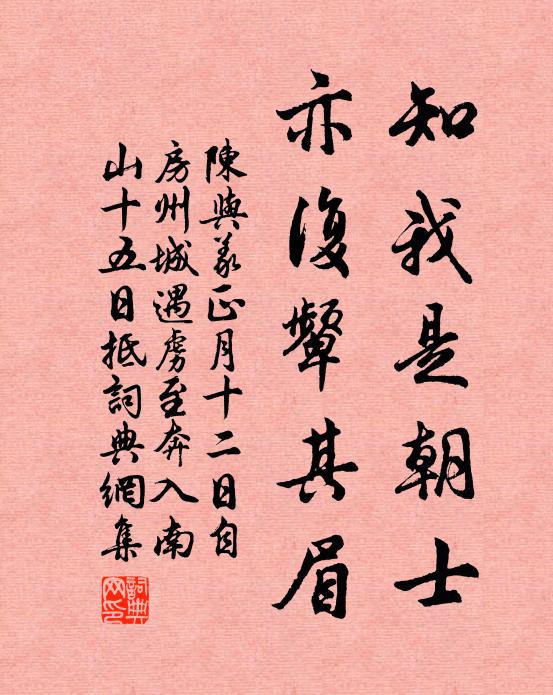 知我是朝士
亦復顰其眉
陳與義正月十二日自
房州城遇虜至奔入南
山十五日抵詞典網集
詞典網印